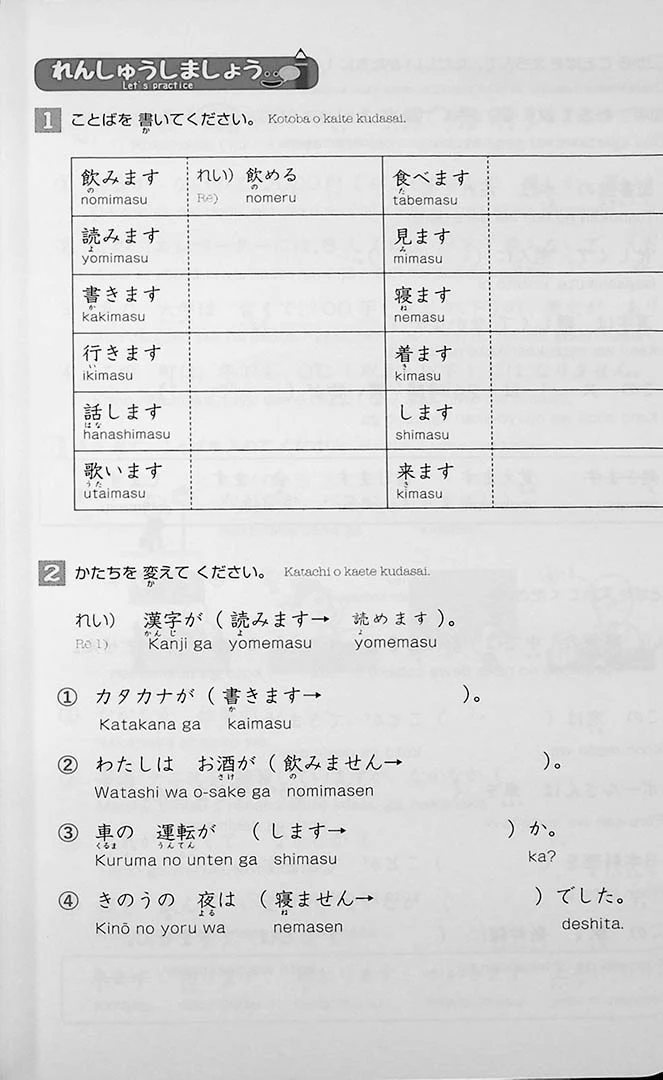 れんしゅうしましょう
Let's practice
1 ことばを 書いてください。 Kotoba o kaite kudasai.
か
飲みます れい) 飲める 食べます
の の た
nomimasu Rē) nomeru tabemasu
読みます 見ます
よ み
yomimasu mimasu
書きます 寝ます
か ね
kakimasu nemasu
行きます 着ます
い き
ikimasu kimasu
話します します
はな
hanashimasu shimasu
歌います 来ます
うた き
utaimasu kimasu
2 かたちを 変えて ください。 Katachi o kaete kudasai.
か
れい) 漢字が ( 読みます→ 読めます )。
かんじ よ よ
Rē 1) Kanji ga yomemasu yomemasu
① カタカナが ( 書きます→ )。
か
Katakana ga kaimasu
② わたしは お酒が ( 飲みません→ )。
さけ の
Watashi wa o-sake ga nomimasen
③ 車の 運転が ( します→ ) か。
くるま うんてん
Kuruma no unten ga shimasu ka?
④ きのうの 夜は ( 寝ません→ ) でした。
よる ね
Kinō no yoru wa nemasen deshita.